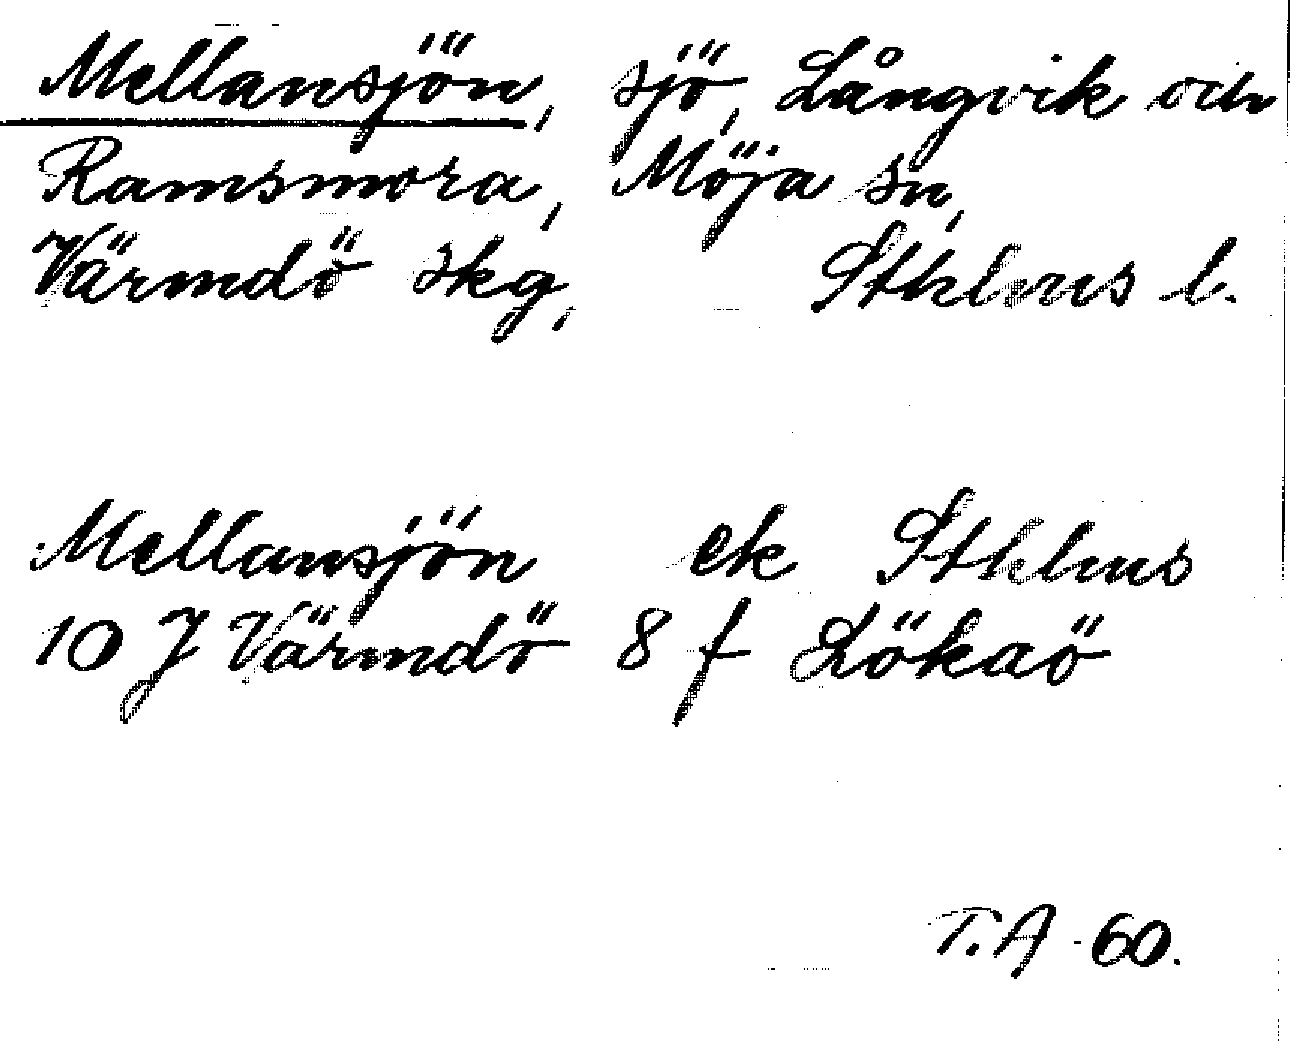 Mellansjön, sjö, Långvik och
Ramsmora, Möja sn,
Värmdö skg, Sthlms l.
Mellansjön ek Sthlms
10 J Värmdö 8 f Lökaö
T.A -60.